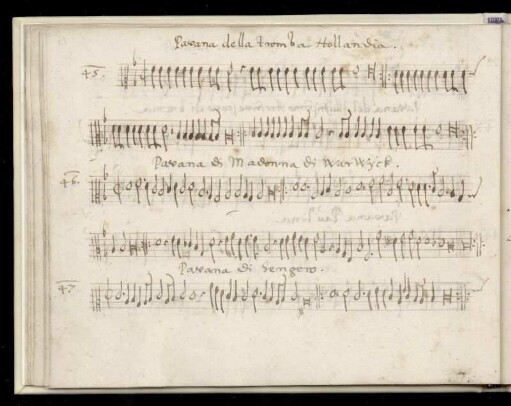 Pavana della tromba Hollandia.
45.
Pavana di Madonna di WarWyck.
46.
Pavana di
47.